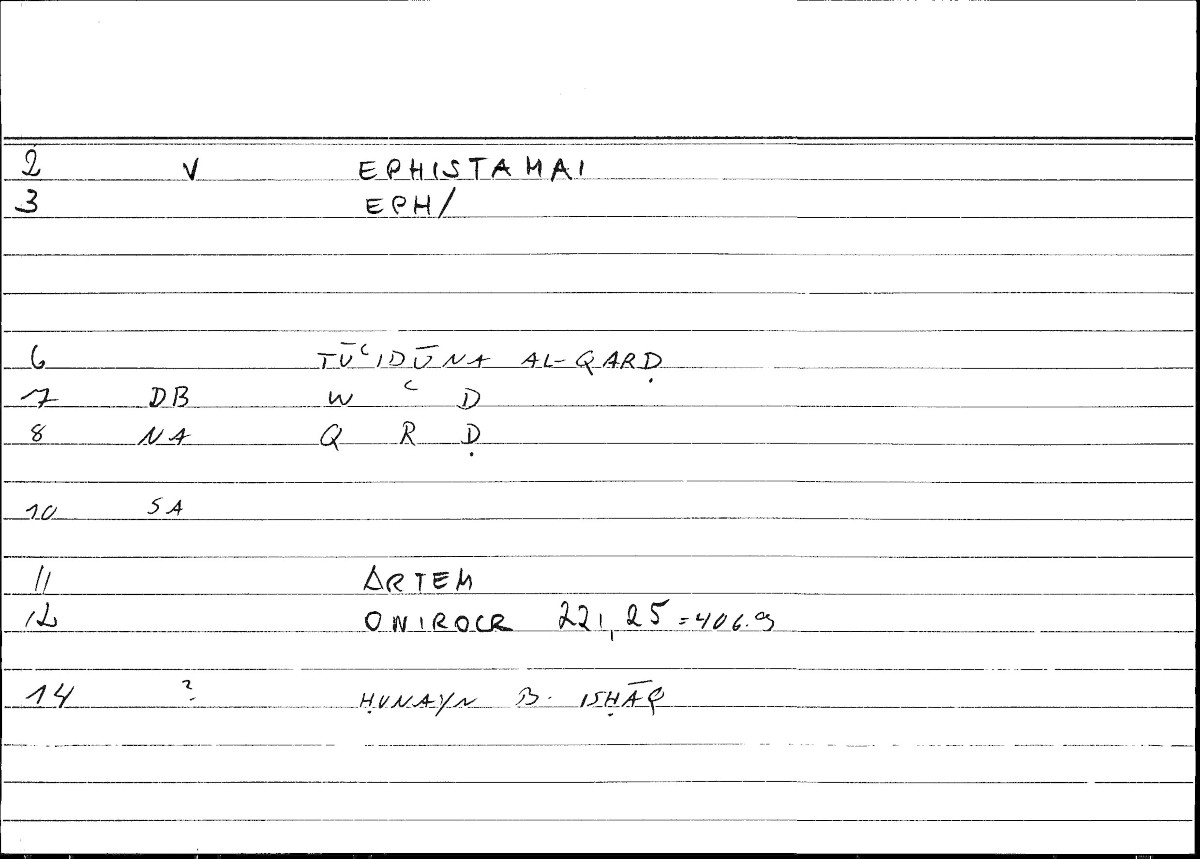 2 V EPHISTAMAI
3 EPH/
6 TŪʿIDŪNA AL-QARḌ
7 DB W ʿ D
8 NA Q R Ḍ
10 SA
11 ARTEM
12 ONIROCR 221,25 = 406.9
14 ? ḤUNAYN B. ISḤĀQ